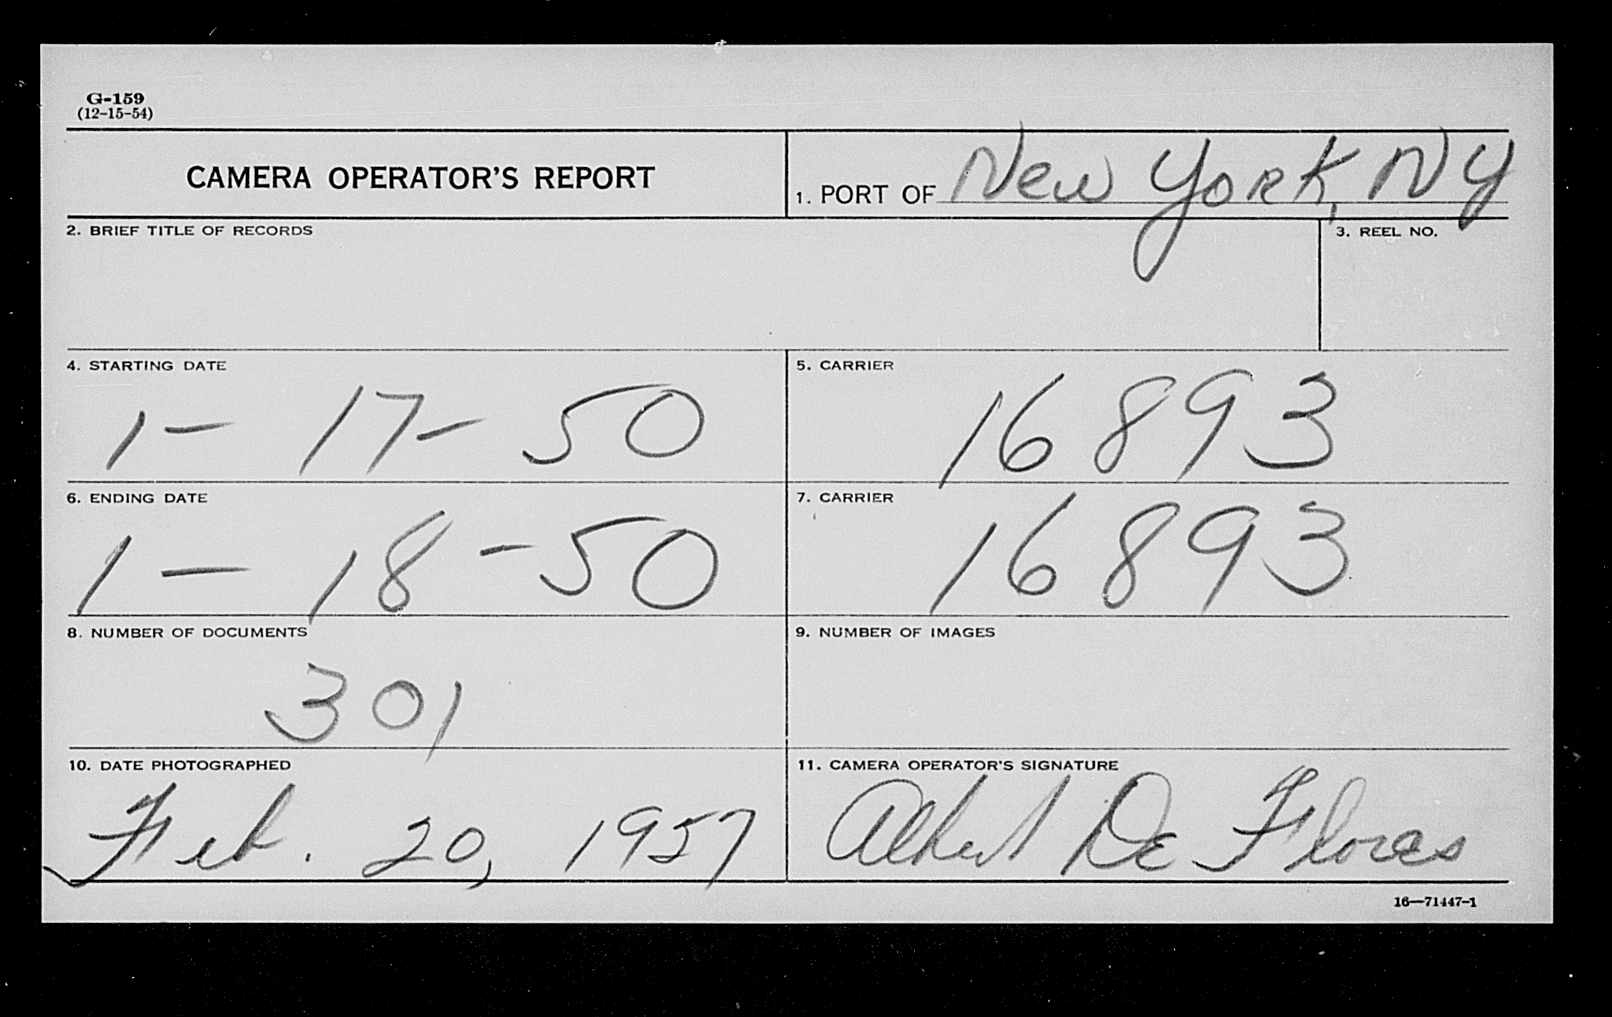 G-159
(12-15-54)
CAMERA OPERATOR'S REPORT
1. PORT OF New York, NY
2. BRIEF TITLE OF RECORDS
3. REEL NO.
4. STARTING DATE
1-17-50
5. CARRIER
16893
6. ENDING DATE
1-18-50
7. CARRIER
16893
8. NUMBER OF DOCUMENTS
301
9. NUMBER OF IMAGES
10. DATE PHOTOGRAPHED
Feb. 20, 1957
11. CAMERA OPERATOR'S SIGNATURE
Albert De Flores
16—71447-1